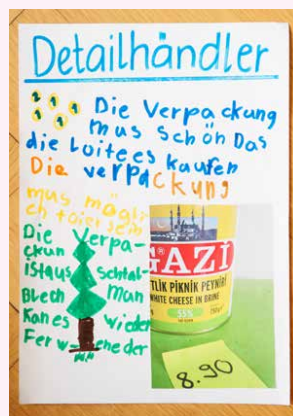 Detailhändler
1 1 1 1 1
Die Verpackung
mus schön Das
die Loitees kaufen
Die verpackung
mus mögli
ch toier sein
Die Verpa-
ckun
ist aus Schtal-
Blech Man
Kan es wieder
Ferw eneder
GAZİ
TLİK PİKNİK PEYNİRİ
WHITE CHEESE IN BRINE
55%
8.90